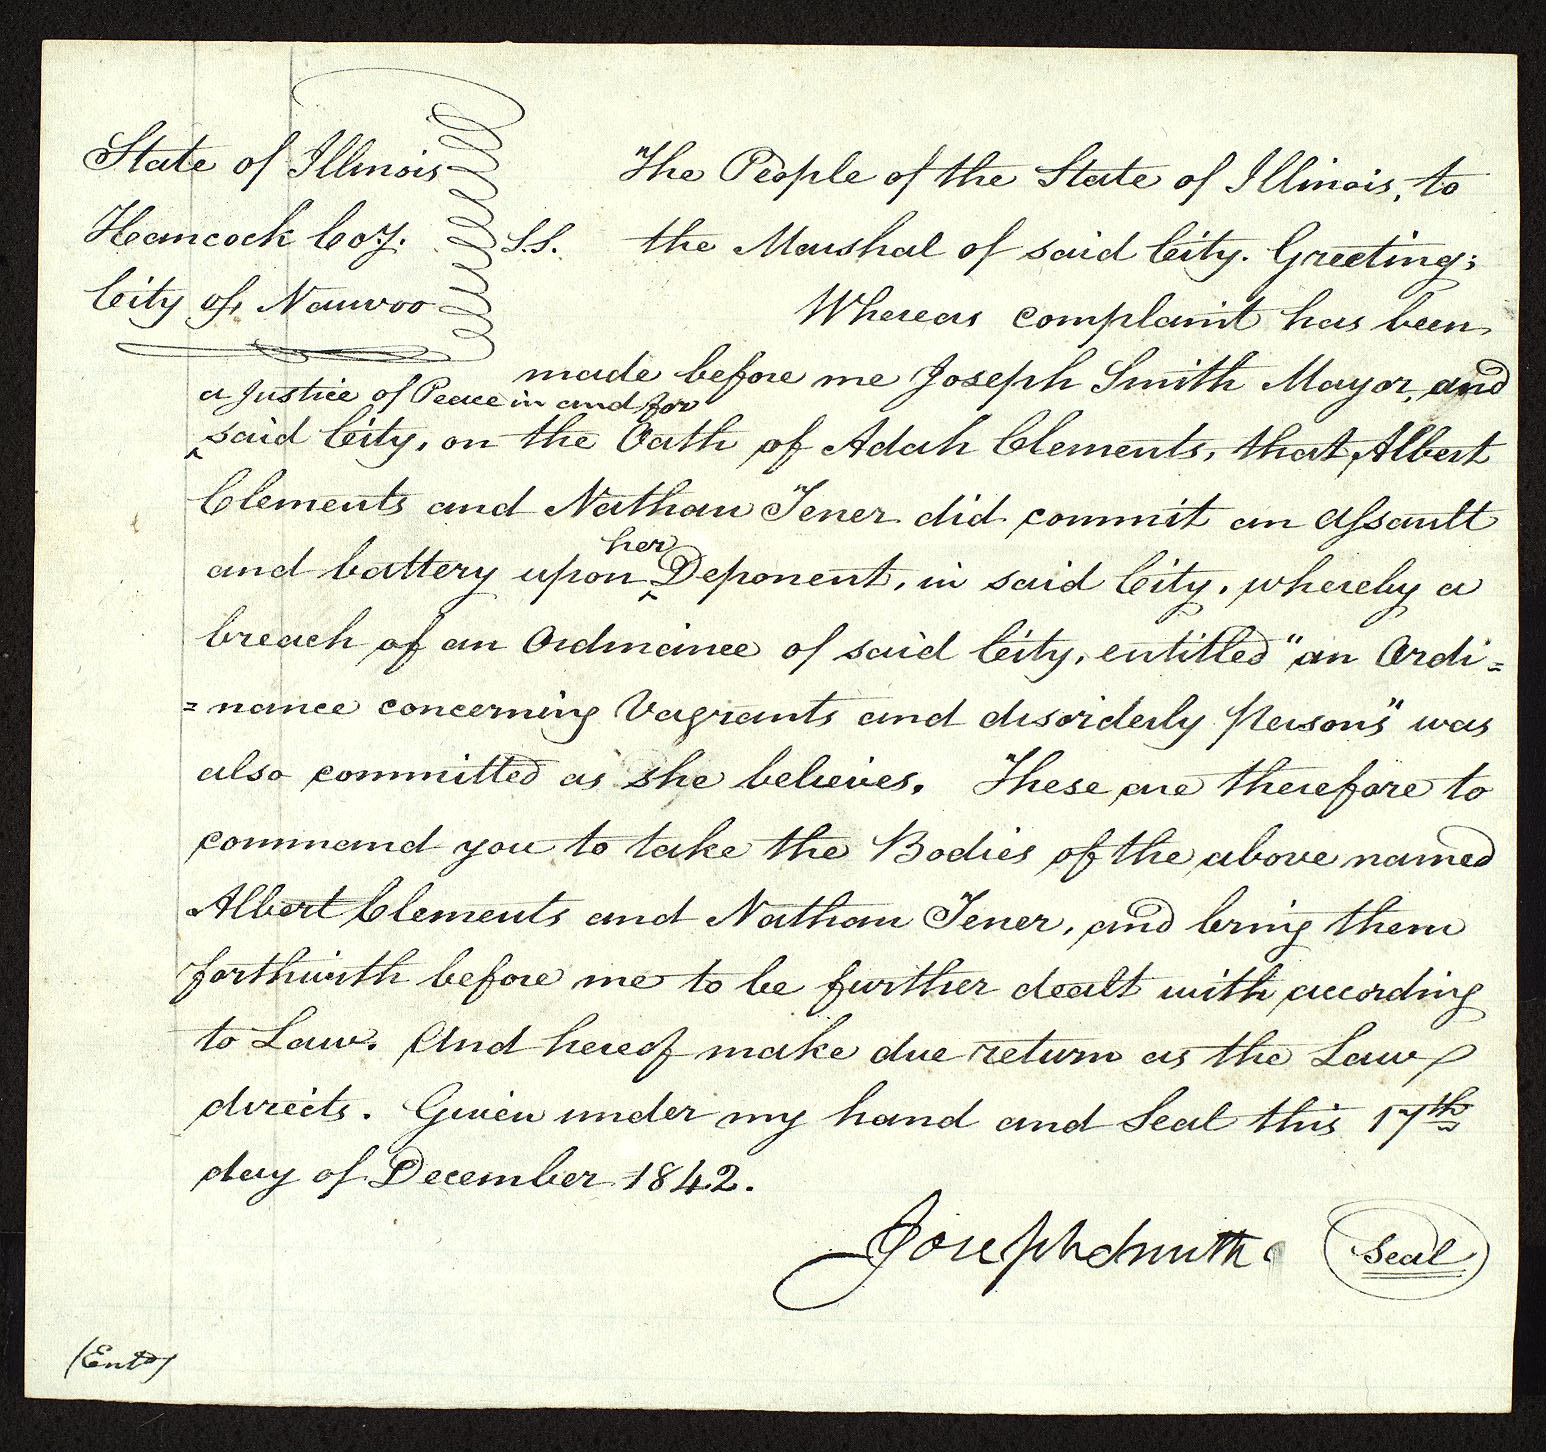 State of Illinois
Hancock Coy.
City of, Nauvoo
S.S.
The People of the State of Illinois, to
the Marshal of said City. Greeting;
Whereas complaint has been
made before me Joseph Smith Mayor, and
a Justice of Peace in and for
said City, on the Oath of Adah Clements, that Albert
Clements and Nathan Tener did commit an assault
her
and battery upon Deponent, in said City, whereby a
breach of an Ordinance of said City, entitled "an Ordi=
=nance concerning Vagrants and disorderly Persons" was
also committed as she believes. These are therefore to
command you to take the Bodies of the above named
Albert Clements and Nathan Tener, and bring them
forthwith before me to be further dealt with according
to Law. And hereof make due return as the Law
directs. Given under my hand and Seal this 17th
day of December 1842.
Joseph Smith
Seal
(Entd)